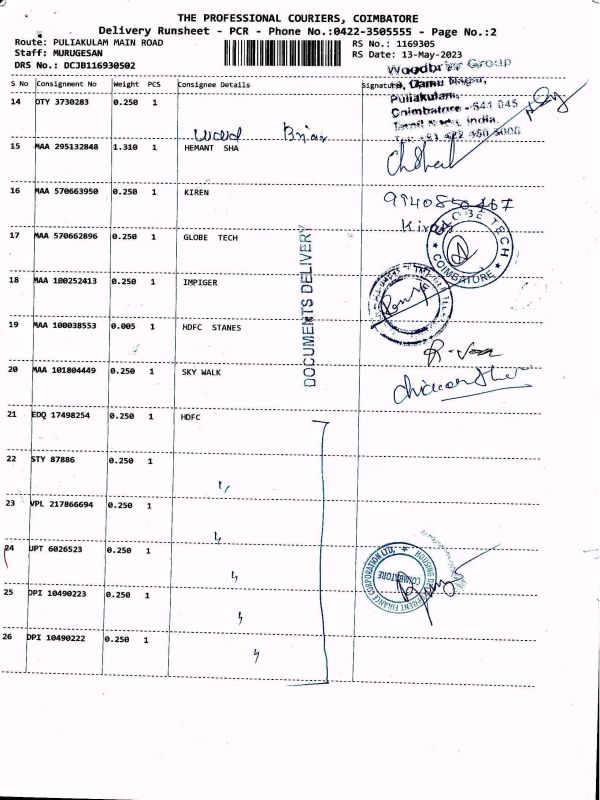 THE PROFESSIONAL COURIERS, COIMBATORE
Delivery Runsheet - PCR - Phone No.:0422-3505555 - Page No.:2
Route: PULIAKULAM MAIN ROAD
RS No.: 1169305
Staff: MURUGESAN
RS Date: 13-May-2023
DRS No.: DCJB116930502
Woodbriar Group
S No Consignment No Weight PCS Consignee Details Signature
Puliakulam,
Coimbatore - 641 045
14 DTY 3730283 0.250 1
15 MAA 295132848 1.310 1 HEMANT SHA
16 MAA 570663950 0.250 1 KIREN
Kiren
17 MAA 570662896 0.250 1 GLOBE TECH
GLOBE TECH
COIMBATORE
DOCUMENTS DELIVERY
18 MAA 100252413 0.250 1 IMPIGER
19 MAA 100038553 0.005 1 HDFC STANES
20 MAA 101804449 0.250 1 SKY WALK
21 EDQ 17498254 0.250 1 HDFC
22 STY 87886 0.250 1
23 VPL 217866694 0.250 1
24 UPT 6026523 0.250 1
HOUSING DEVELOPMENT FINANCE CORPORATION LTD.
COIMBATORE
25 DPI 10490223 0.250 1
26 DPI 10490222 0.250 1